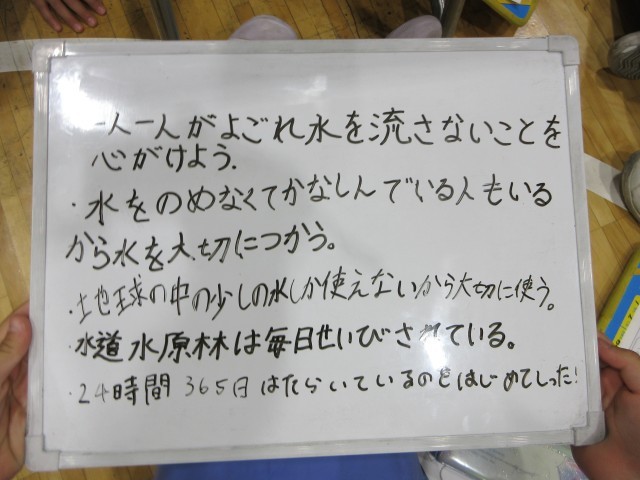 一人一人がよごれ水を流さないことを
心がけよう.
・水をのめなくてかなしんでいる人もいる
から水を大切につかう。
・地球の中の少しの水しか使えないから大切に使う。
・水道水原林は毎日せいびされている。
・24時間365日はたらいているのをはじめてしった!